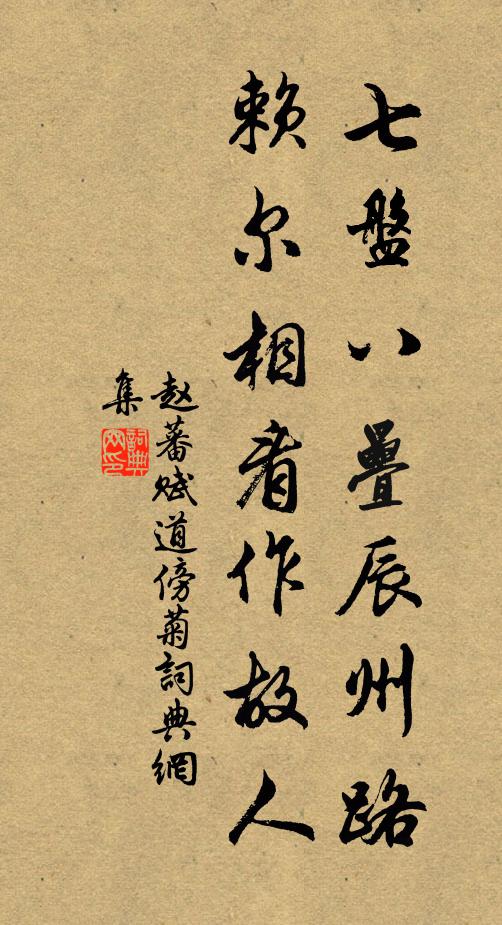 七盤八疊辰州路
赖尔相看作故人
赵蕃赋道傍菊詞典網
集
詞典
网印